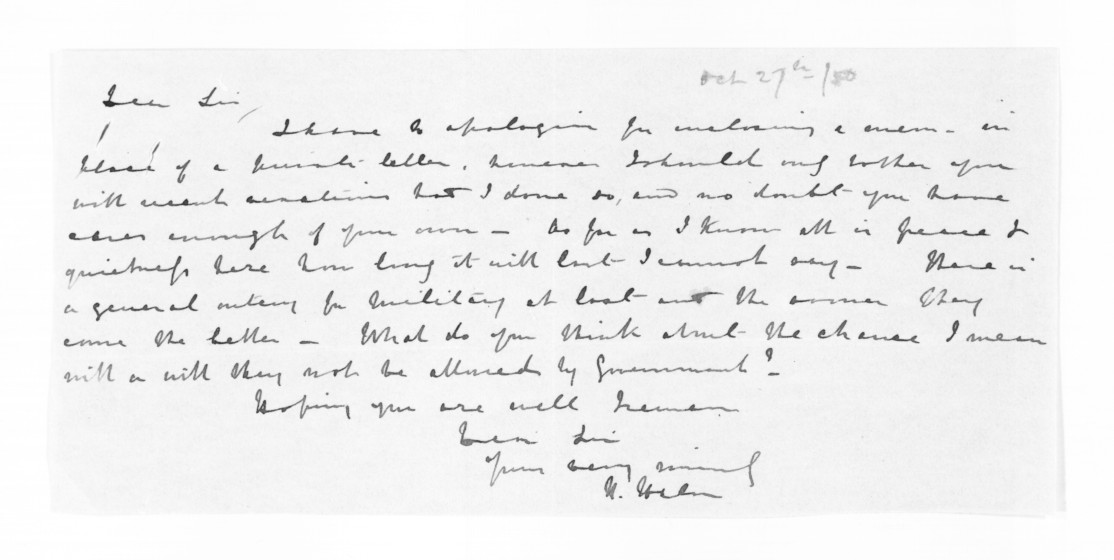 Oct 27th /50
Dear Sir,
I have to apologise for enclosing a mem - in
place of a private letter, however I should only bother you
with recent had I done so, and no doubt you have
cares enough of your own - As far as I know all is peace &
quietness here how long it will last I cannot say - There is
a general outcry for military at last and the sooner they
come the better - What do you think about the chance I mean
will or will they not be allowed by Government? -
Hoping you are well I remain
Dear Sir
Yours very sincerely